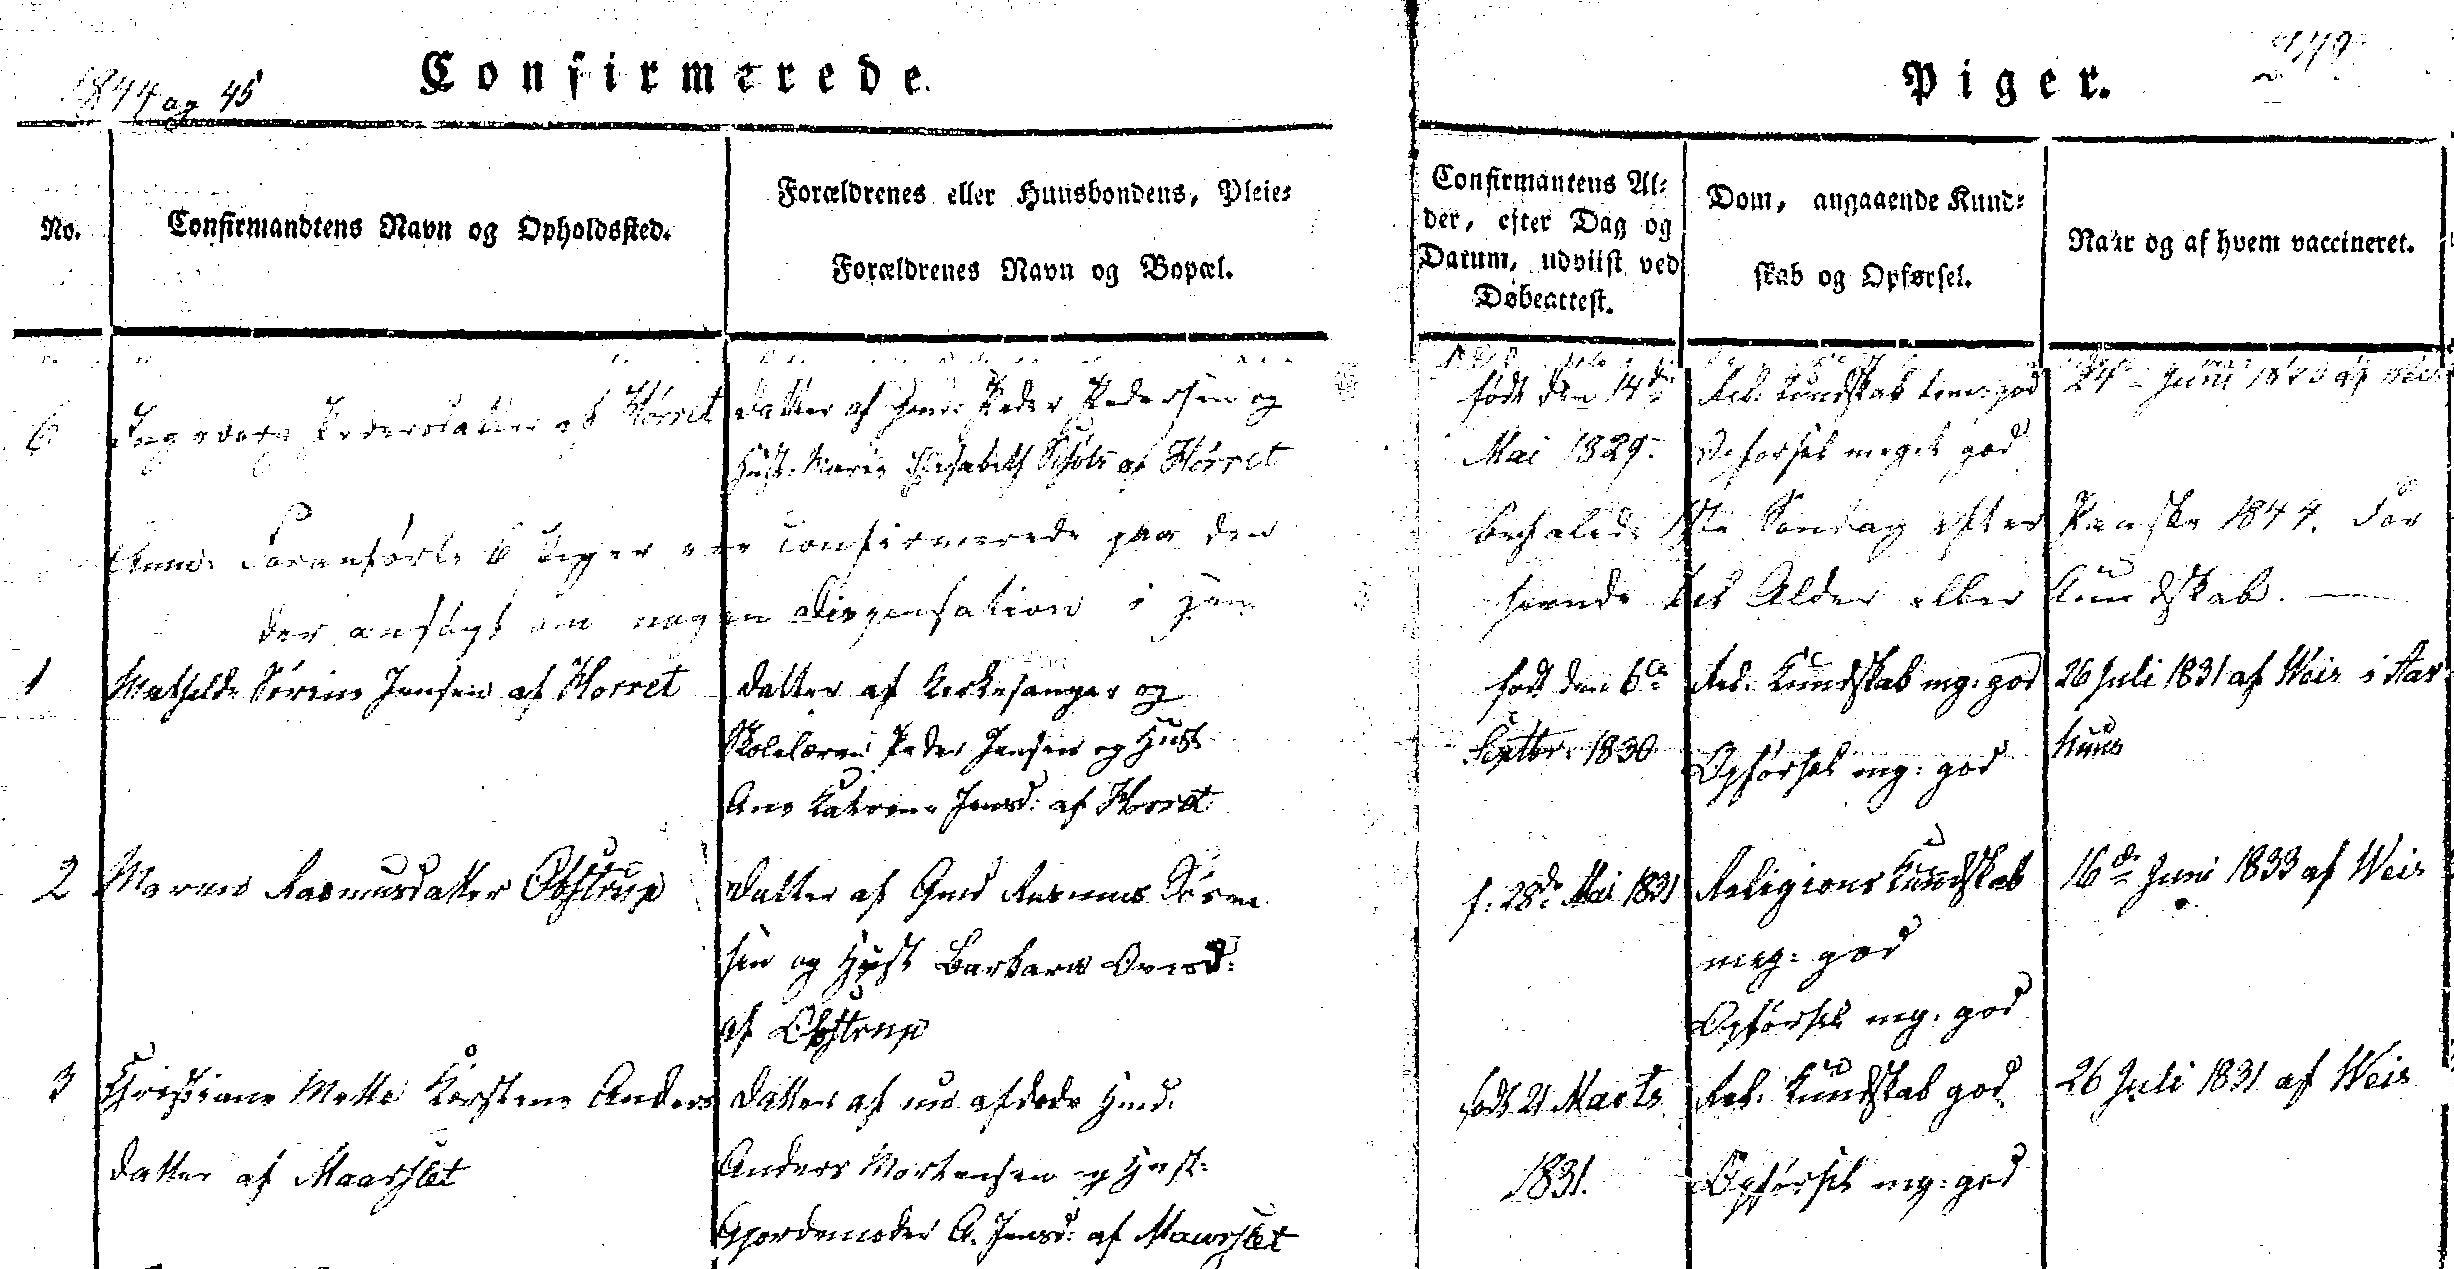 1844 og 45
Confirmerede.
Piger.
249
No.
Confirmandtens Navn og Opholdssted.
Forældrenes eller Huusbondens, Pleie-
Forældrenes Navn og Bopæl.
Confirmantens Al-
der, efter Dag og
Datum, udviist ved
Døbeattest.
Dom, angaaende Kund-
skab og Opførsel.
Naar og af hvem vaccineret.
6 Ingeborg Pedersdatter af Hörret
Datter af Peder Pedersen og
Hust. Maren Elisabeth af Hörret
født den 14de
Mai 1829.
Rel. Kundskab god
Opførsel meget god
24 Juni
Anm. Foranførte 6 Piger ere confirmerede paa den befalede 1ste Søndag efter Paaske 1844.
der ansøgt om nogen Dispensation i Hen-
seende til Alder eller Kundskab. —
1 Mathilde Sörine Jensen af Horret
Datter af Kirkesanger og
Skolelærer Peder Jensen og Hust
Ane Katrine Jensd: af Horret
født den 6te
Septbr. 1830
Rel. Kundskab mg: god
Opførsel mg: god
26 Juli 1831 af Weis i Aar-
huus
2 Maren Rasmusdatter Obstrup
Datter af Gmd Rasmus Sören-
sen og Hust Barbara
af Obstrup
f. 28de Mai 1831
Religions Kundskab
meg: god
Opførsel mg: god
16de Juni 1833 af Weis
3 Christiane Mette Kirstine Anders
datter af Maarslet
Datter af nu afdøde Hmd.
Anders Mortensen og Hust:
Gjordemoder A. Jensd: af Maarslet
født 21 Marts
1831.
Rel. Kundskab god
Opførsel mg: god
26 Juli 1831 af Weis